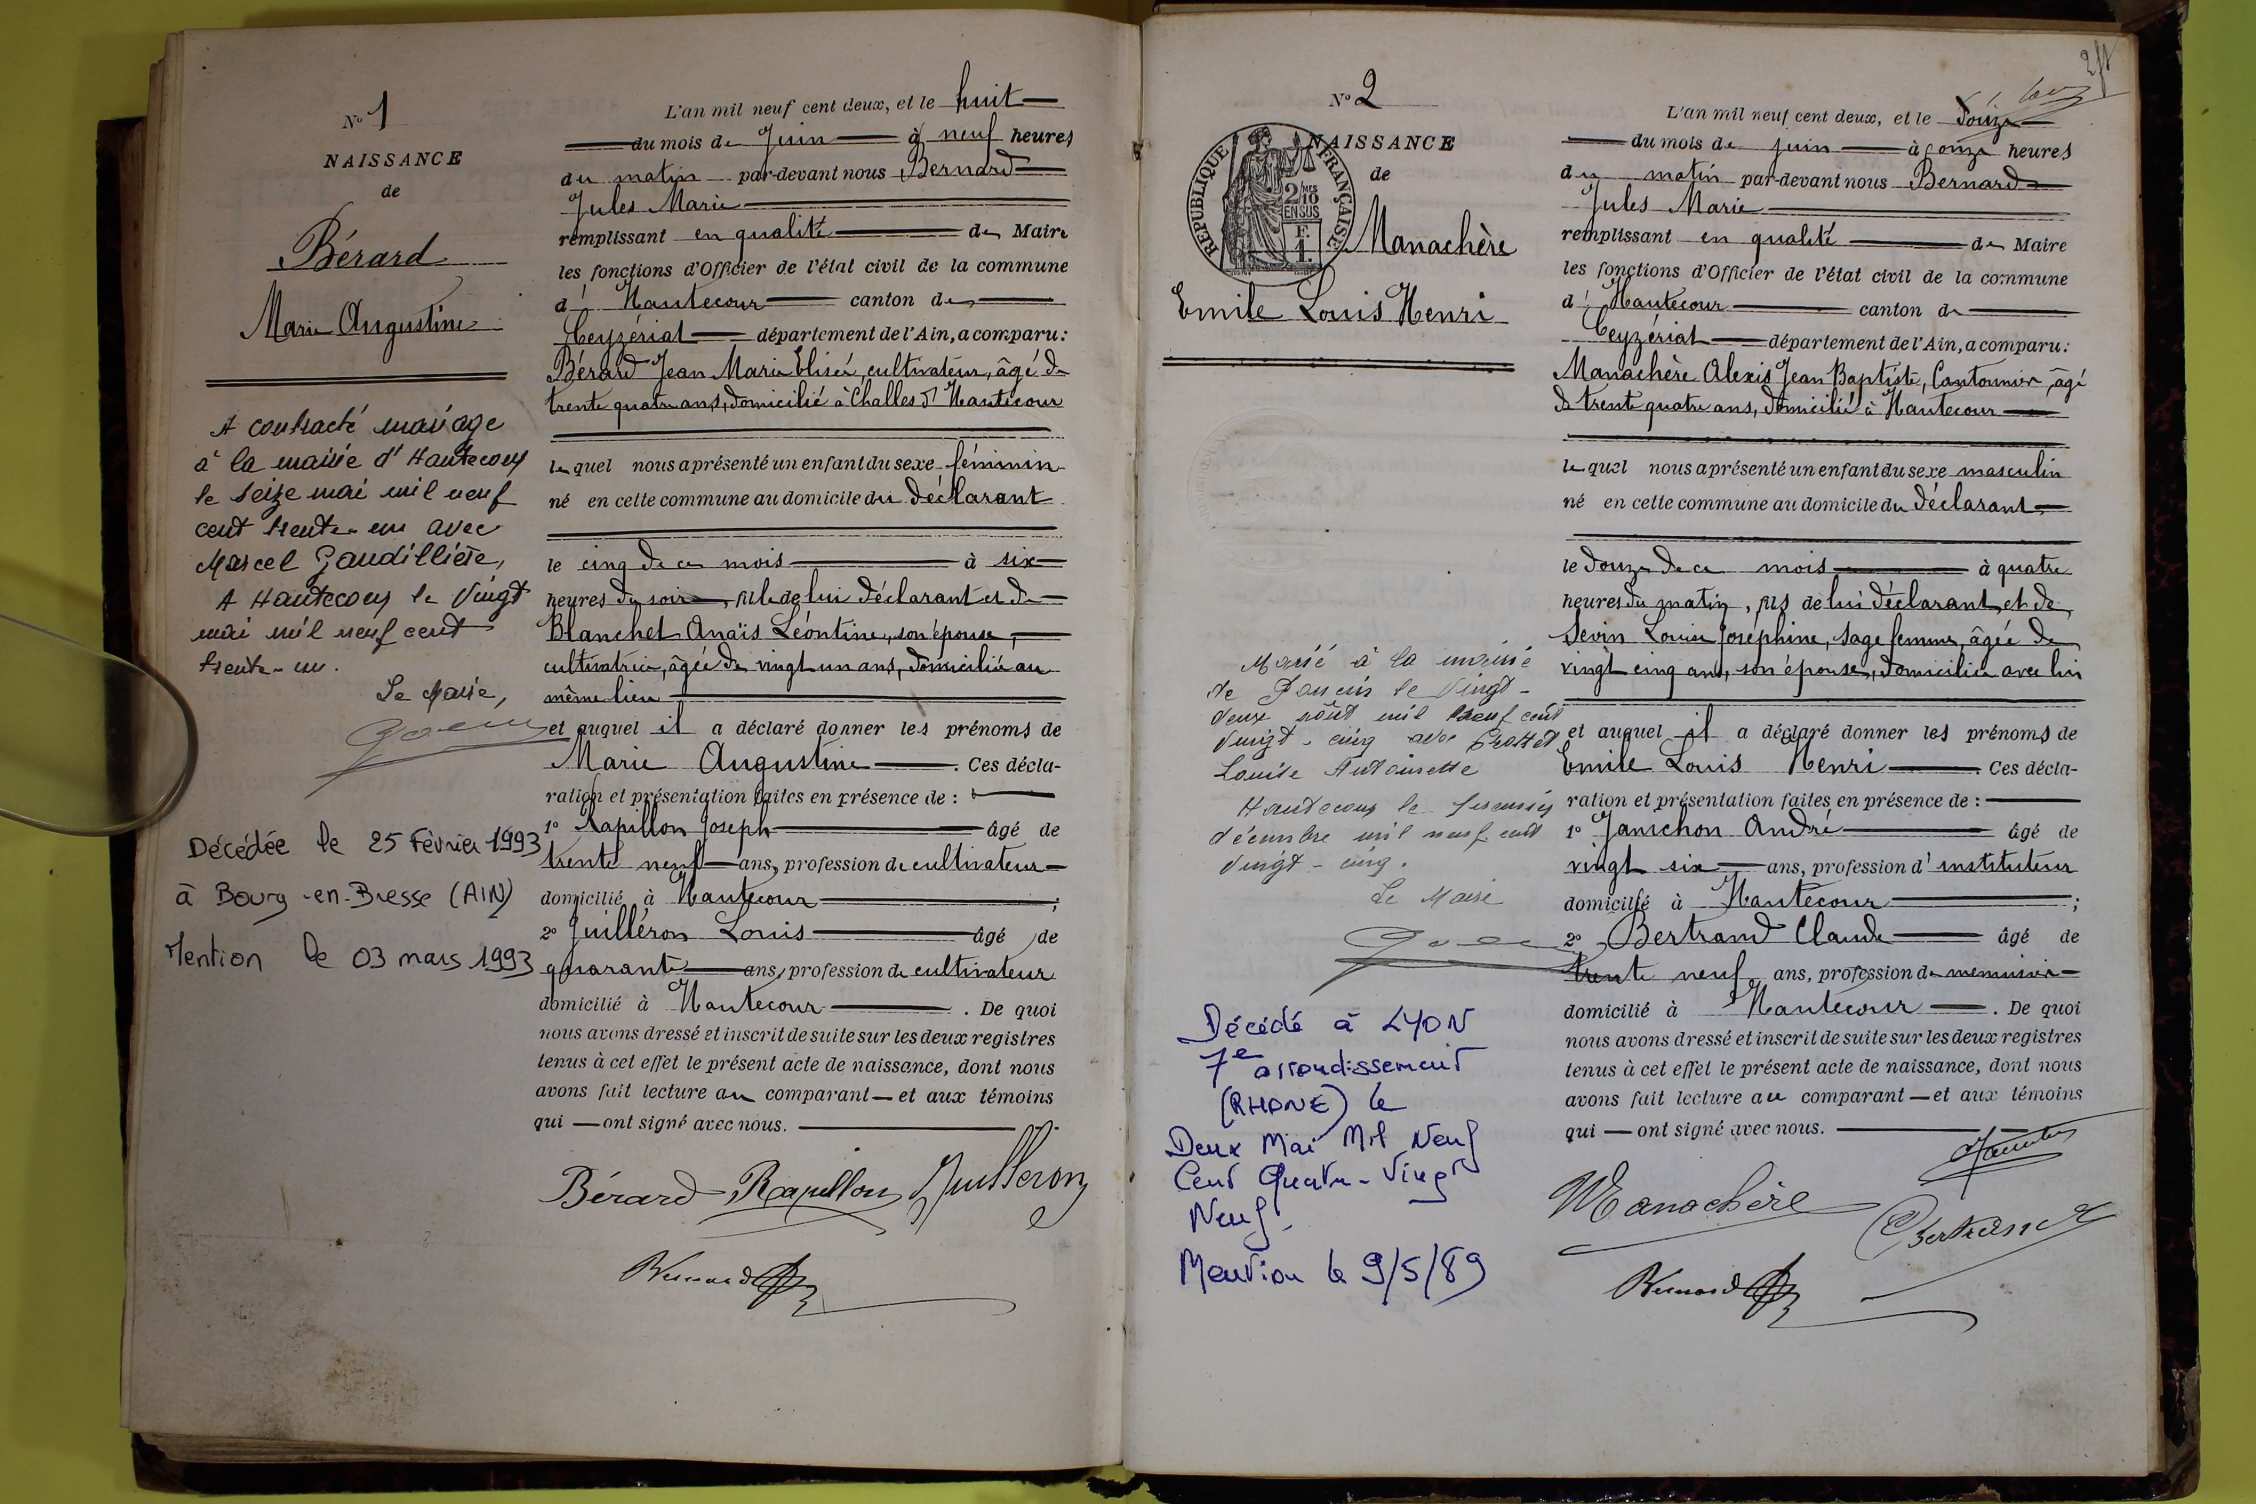 N° 1
NAISSANCE
de
Bérard
Marie Augustine
A contracté mariage
à la mairie d'Hautecour
le seize mai mil neuf
cent trente-un avec
Marcel Gaudillière,
A Hautecour le vingt
mai mil neuf cent
trente-un.
Le Maire,
Décédée le 25 Février 1993
à Bourg-en-Bresse (AIN)
Mention le 03 mars 1993
L'an mil neuf cent deux, et le huit
du mois de Juin à neuf heures
du matin par-devant nous Bernard
Jules Marie
remplissant en qualité de Maire
les fonctions d'Officier de l'état civil de la commune
d' Hautecour canton de
Ceyzériat département de l'Ain, a comparu :
Bérard Jean Marie Elisée, cultivateur, âgé de
trente quatre ans, domicilié à Challes Hautecour
lequel nous a présenté un enfant du sexe féminin
né en cette commune au domicile du déclarant
le cinq de ce mois à six
heures du soir, fille de lui déclarant et de
Blanchet Anaïs Léontine, son épouse,
cultivatrice, âgée de vingt un ans, domiciliée au
même lieu
et auquel il a déclaré donner les prénoms de
Marie Augustine . Ces décla-
ration et présentation faites en présence de :
1° Rapillon Joseph âgé de
trente neuf ans, profession de cultivateur
domicilié à Hautecour ;
2° Juilleron Louis âgé de
quarante ans, profession de cultivateur
domicilié à Hautecour . De quoi
nous avons dressé et inscrit de suite sur les deux registres
tenus à cet effet le présent acte de naissance, dont nous
avons fait lecture au comparant et aux témoins
qui ont signé avec nous.
Bérard Rapillon Juilleron
Bernard
N° 2
NAISSANCE
de
REPUBLIQUE FRANÇAISE
2/10
EN SUS
F.
1.
Manachère
Emile Louis Henri
Marié à la mairie
de le vingt-
deux août mil neuf cent
vingt-cinq avec
Louise Antoinette
Hautecour le premier
décembre mil neuf cent
vingt-cinq.
Le Maire
Décédé à LYON
7e arrondissement
(RHONE) le
Deux Mai Mil Neuf
Cent Quatre-Vingt
Neuf.
Mention le 9/5/89
L'an mil neuf cent deux, et le douze
du mois de juin à onze heures
du matin par-devant nous Bernard
Jules Marie
remplissant en qualité de Maire
les fonctions d'Officier de l'état civil de la commune
d' Hautecour canton de
Ceyzériat département de l'Ain, a comparu :
Manachère Alexis Jean Baptiste, Cantonnier, âgé
de trente quatre ans, domicilié à Hautecour
lequel nous a présenté un enfant du sexe masculin
né en cette commune au domicile du déclarant
le douze de ce mois à quatre
heures du matin, fils de lui déclarant et de
Sevin Louise Joséphine, sage femme, âgée de
vingt cinq ans, son épouse, domiciliée avec lui
et auquel il a déclaré donner les prénoms de
Emile Louis Henri . Ces décla-
ration et présentation faites en présence de :
1° Janichon André âgé de
vingt six ans, profession d'instituteur
domicilié à Hautecour ;
2° Bertrand Claude âgé de
trente neuf ans, profession de menuisier
domicilié à Hautecour . De quoi
nous avons dressé et inscrit de suite sur les deux registres
tenus à cet effet le présent acte de naissance, dont nous
avons fait lecture au comparant et aux témoins
qui ont signé avec nous.
Manachère
Bertrand
Bernard